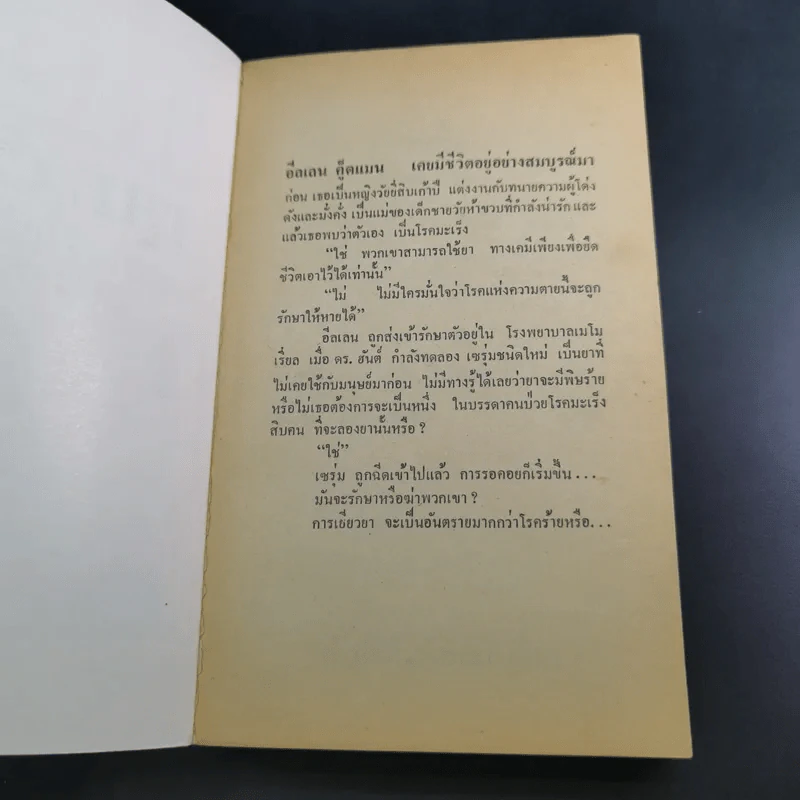 อีลเลน กู็ดแมน เคยมีชีวิตอยู่อย่างสมบูรณ์มา
ก่อน เธอเป็นหญิงวัยยี่สิบเก้าปี แต่งงานกับทนายความผู้โด่ง
ดังและมั่งคั่ง เป็นแม่ของเด็กชายวัยห้าขวบที่กำลังน่ารัก และ
แล้วเธอพบว่าตัวเอง เป็นโรคมะเร็ง
“ใช่ พวกเขาสามารถใช้ยา ทางเคมีเพียงเพื่อยืด
ชีวิตเอาไว้ได้เท่านั้น”
“ไม่ ไม่มีใครมั่นใจว่าโรคแห่งความตายนี้จะถูก
รักษาให้หายได้”
อีลเลน ถูกส่งเข้ารักษาตัวอยู่ใน โรงพยาบาลเมโม
เรี่ยล เมื่อ ดร. ฮันต์ กำลังทดลอง เซรุ่มชนิดใหม่ เป็นยาที่
ไม่เคยใช้กับมนุษย์มาก่อน ไม่มีทางรู้ได้เลยว่ายาจะมีพิษร้าย
หรือไม่เธอต้องการจะเป็นหนึ่ง ในบรรดาคนป่วยโรคมะเร็ง
สิบคน ที่จะลองยานั้นหรือ ?
“ใช่”
เซรุ่ม ถูกฉีดเข้าไปแล้ว การรอคอยก็เริ่มขึ้น...
มันจะรักษาหรือฆ่าพวกเขา ?
การเยียวยา จะเป็นอันตรายมากกว่าโรคร้ายหรือ...